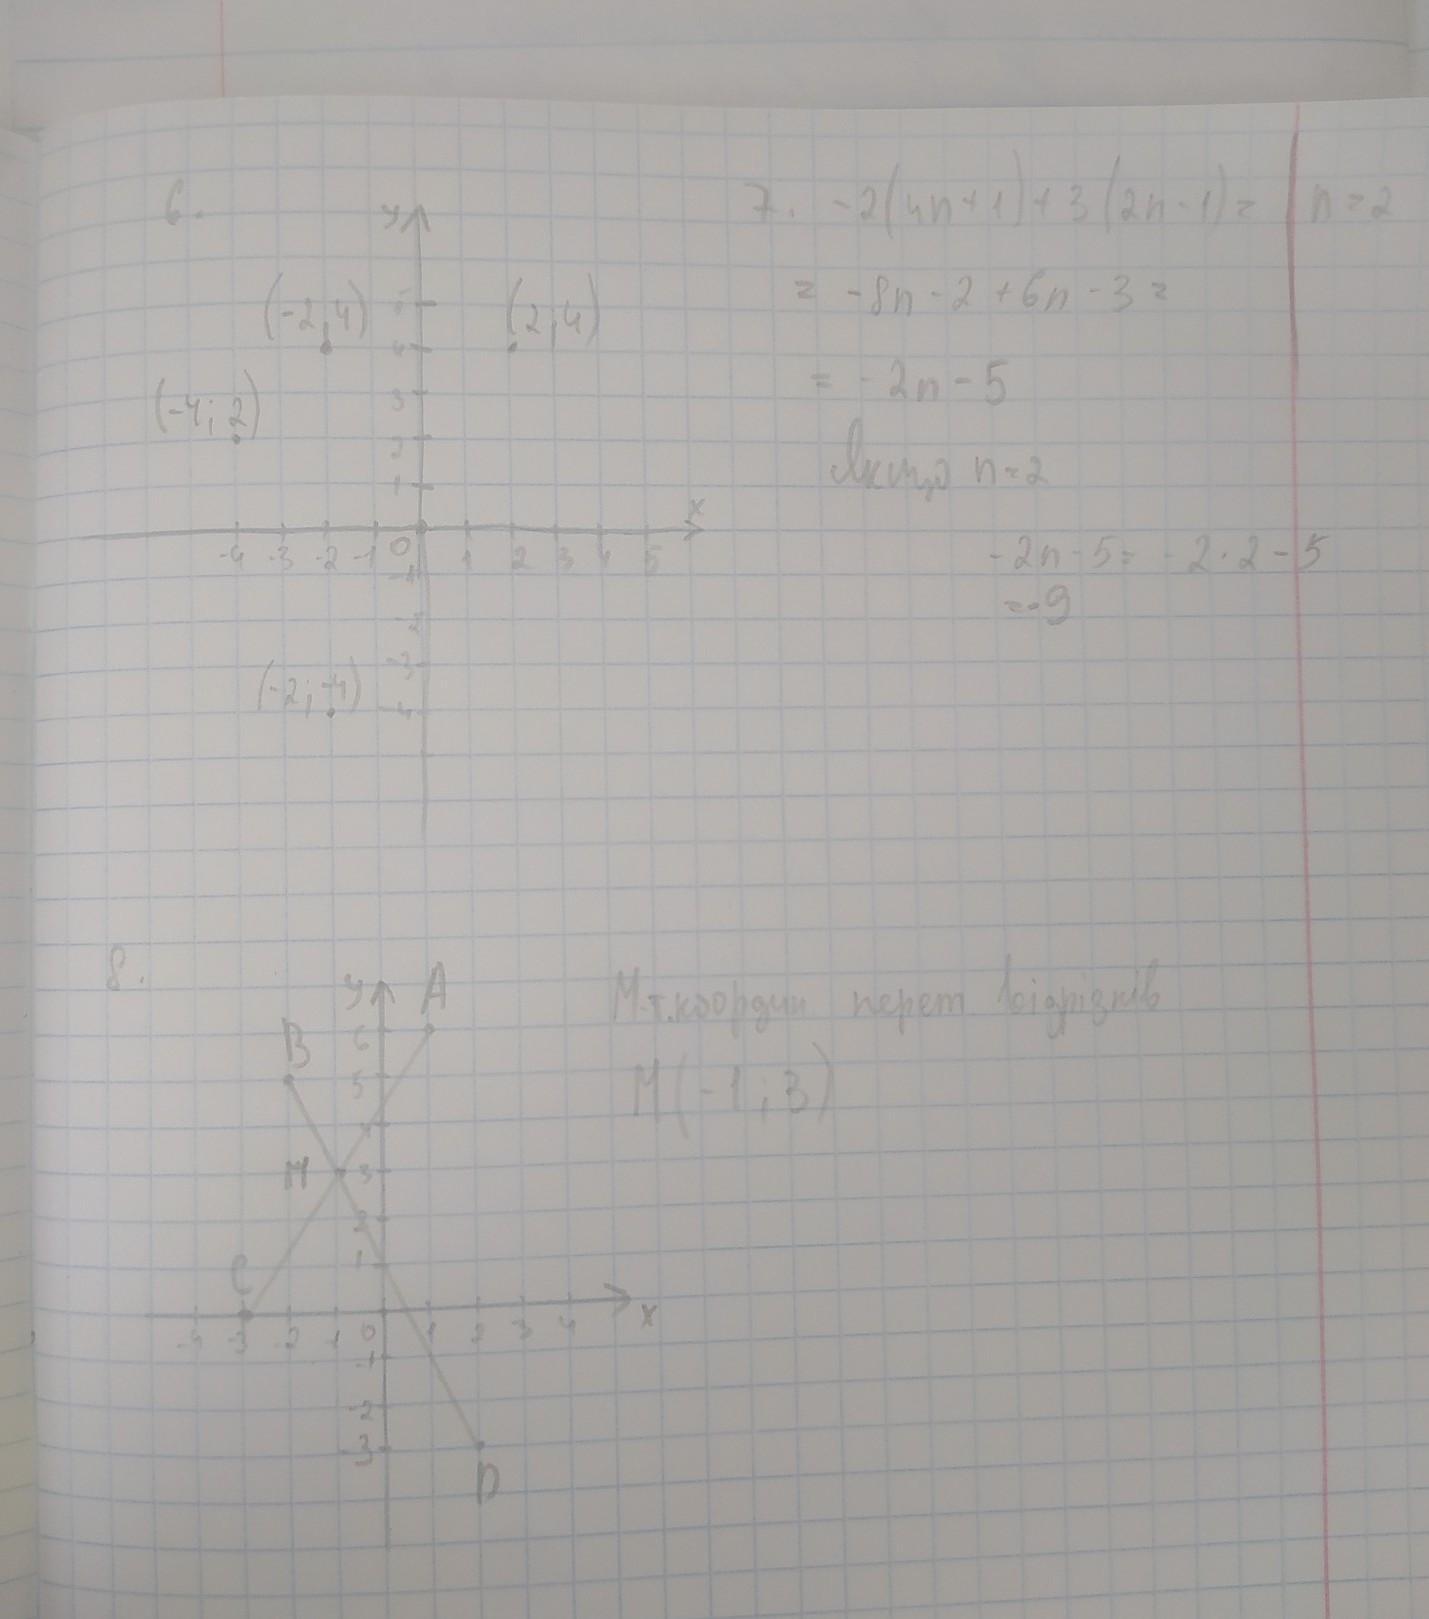 6.
у
(-2;4) (2;4)
5
4
(-4;2)
3
2
1
x
-4 -3 -2 -1 0 1 2 3 4 5
-1
-2
-3
(-2;-4)
-4
7. -2(4n+1)+3(2n-1)= | n=2
= -8n-2+6n-3=
= -2n-5
Якщо n=2
-2n-5= -2·2-5
=-9
8.
у A
B 6
5
4
M 3
2
1
C
x
-4 -3 -2 -1 0 1 2 3 4
-1
-2
-3
D
М-т.координ перет відрізків
М(-1;3)